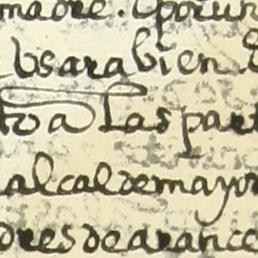 madre. Oporun
bsarabien
to a las part
alcaldemayor
dresdearance